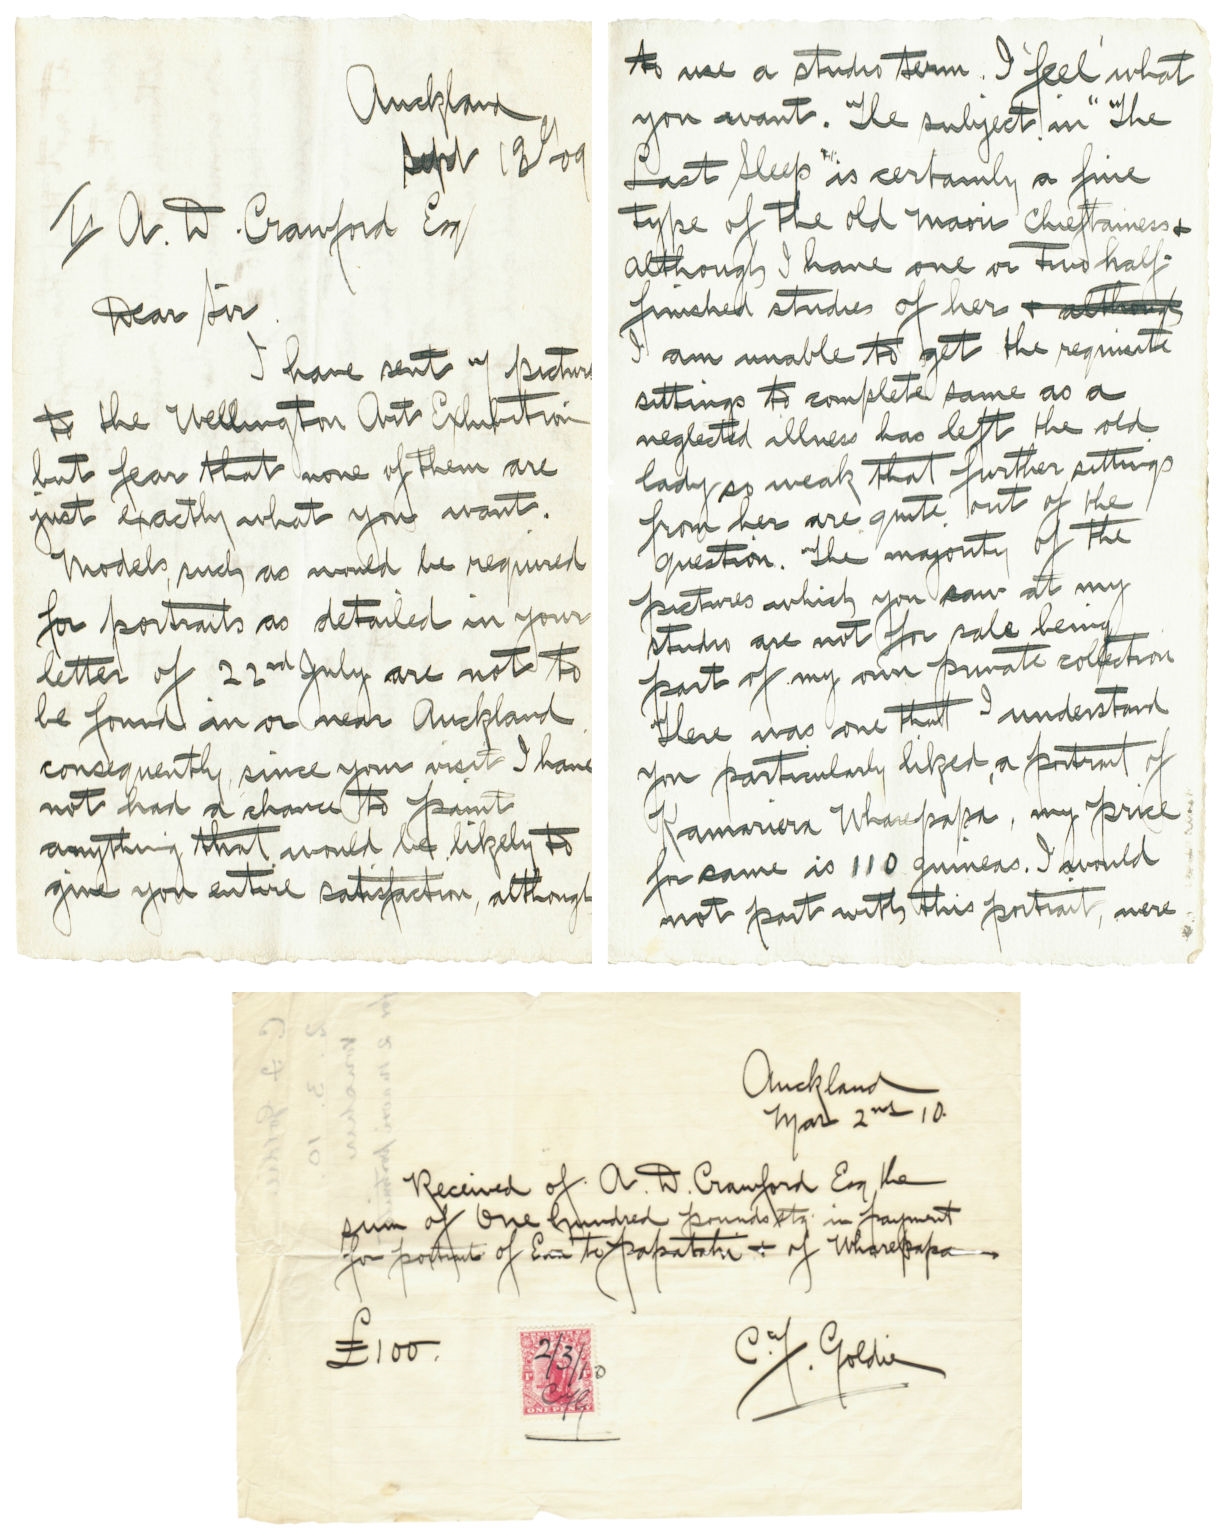 Auckland
Sept 13th 09
To A. D. Crawford Esq
Dear Sir.
I have sent 4 picture
to the Wellington Art Exhibition
but fear that none of them are
just exactly what you want.
Models, such as would be required
for portraits as detailed in your
letter of 22nd July are not to
be found in or near Auckland
consequently, since your visit I have
not had a chance to paint
anything that would be likely to
give you entire satisfaction, although
to use a studio term. I 'feel' what
you want. The subject in "The
Last Sleep" is certainly a fine
type of the old Maori Chieftainess &
although I have one or two half-
finished studies of her & although
I am unable to get the requisite
sittings to complete same as a
neglected illness has left the old
lady so weak that further sittings
from her are quite out of the
question. The majority of the
pictures which you saw at my
studio are not for sale being
part of my own private collection
There was one that I understand
you particularly liked, a portrait of
Kamariera Wharepapa, my price
for same is 110 guineas. I would
not part with this portrait, were
Auckland
Mar 2nd 10.
Received of A. D. Crawford Esq the
sum of One hundred pounds stg. in payment
for portrait of Ena te Papatahi & of Wharepapa
£100.
2/3/10
CFG
ONE PENNY
C. F. Goldie